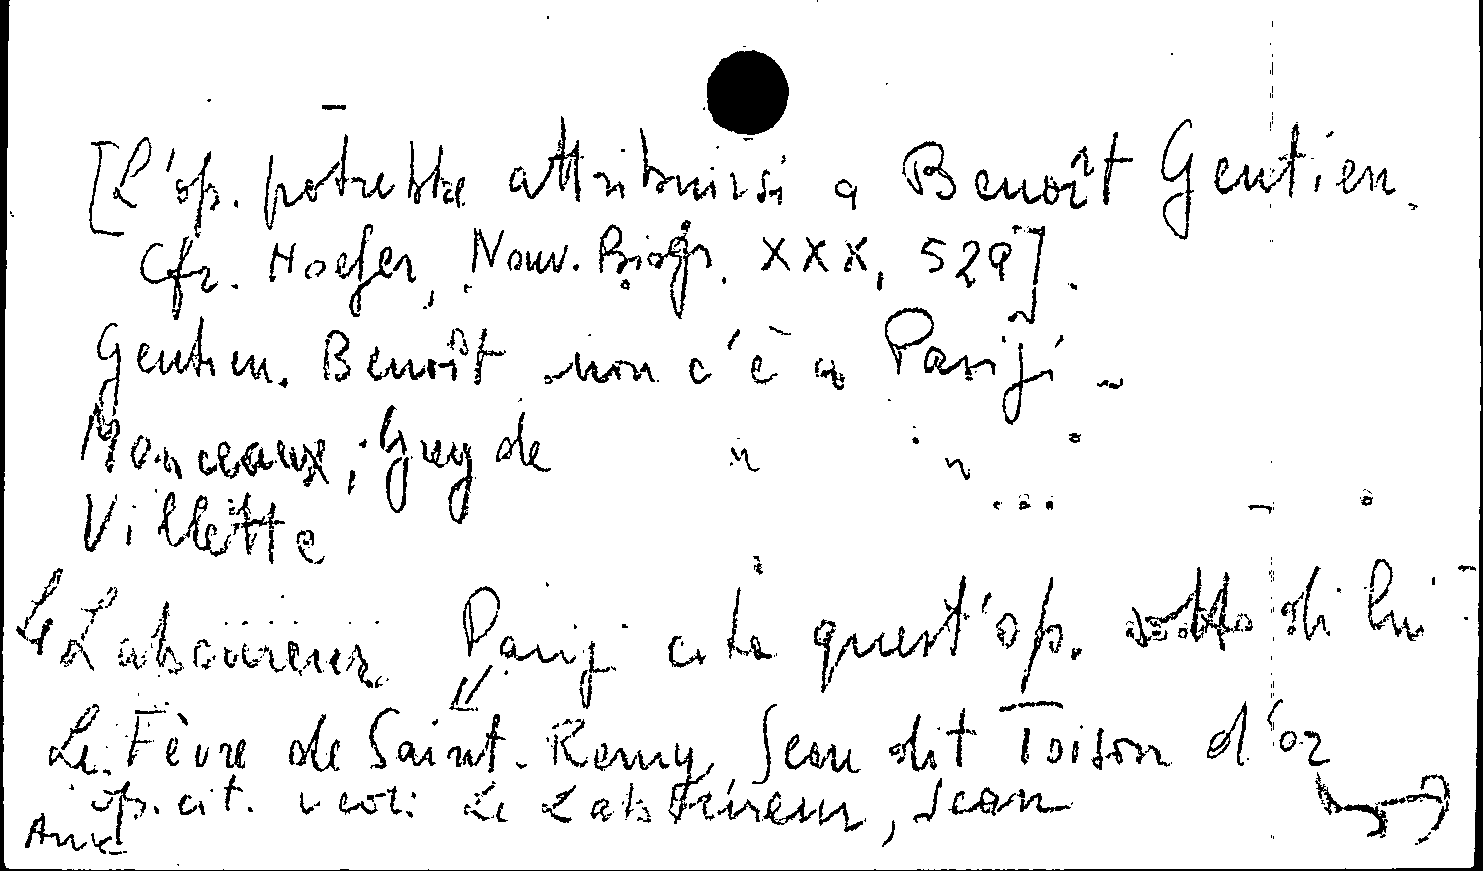 [L'op. potrebbe attribuirsi a Benoît Gentien.
Cfr. Hoefer, Nouv. Biogr. XXX, 529].
Gentien. Benoît non c'è a Parigi -
Monceaux, Guy de " "
Villette
Le Laboureur Parigi cita quest'op. sotto di lui -
Le Fèvre de Saint-Remy Jean dit Toison d'or
op. cit. vedi: Le Laboureur, Jean